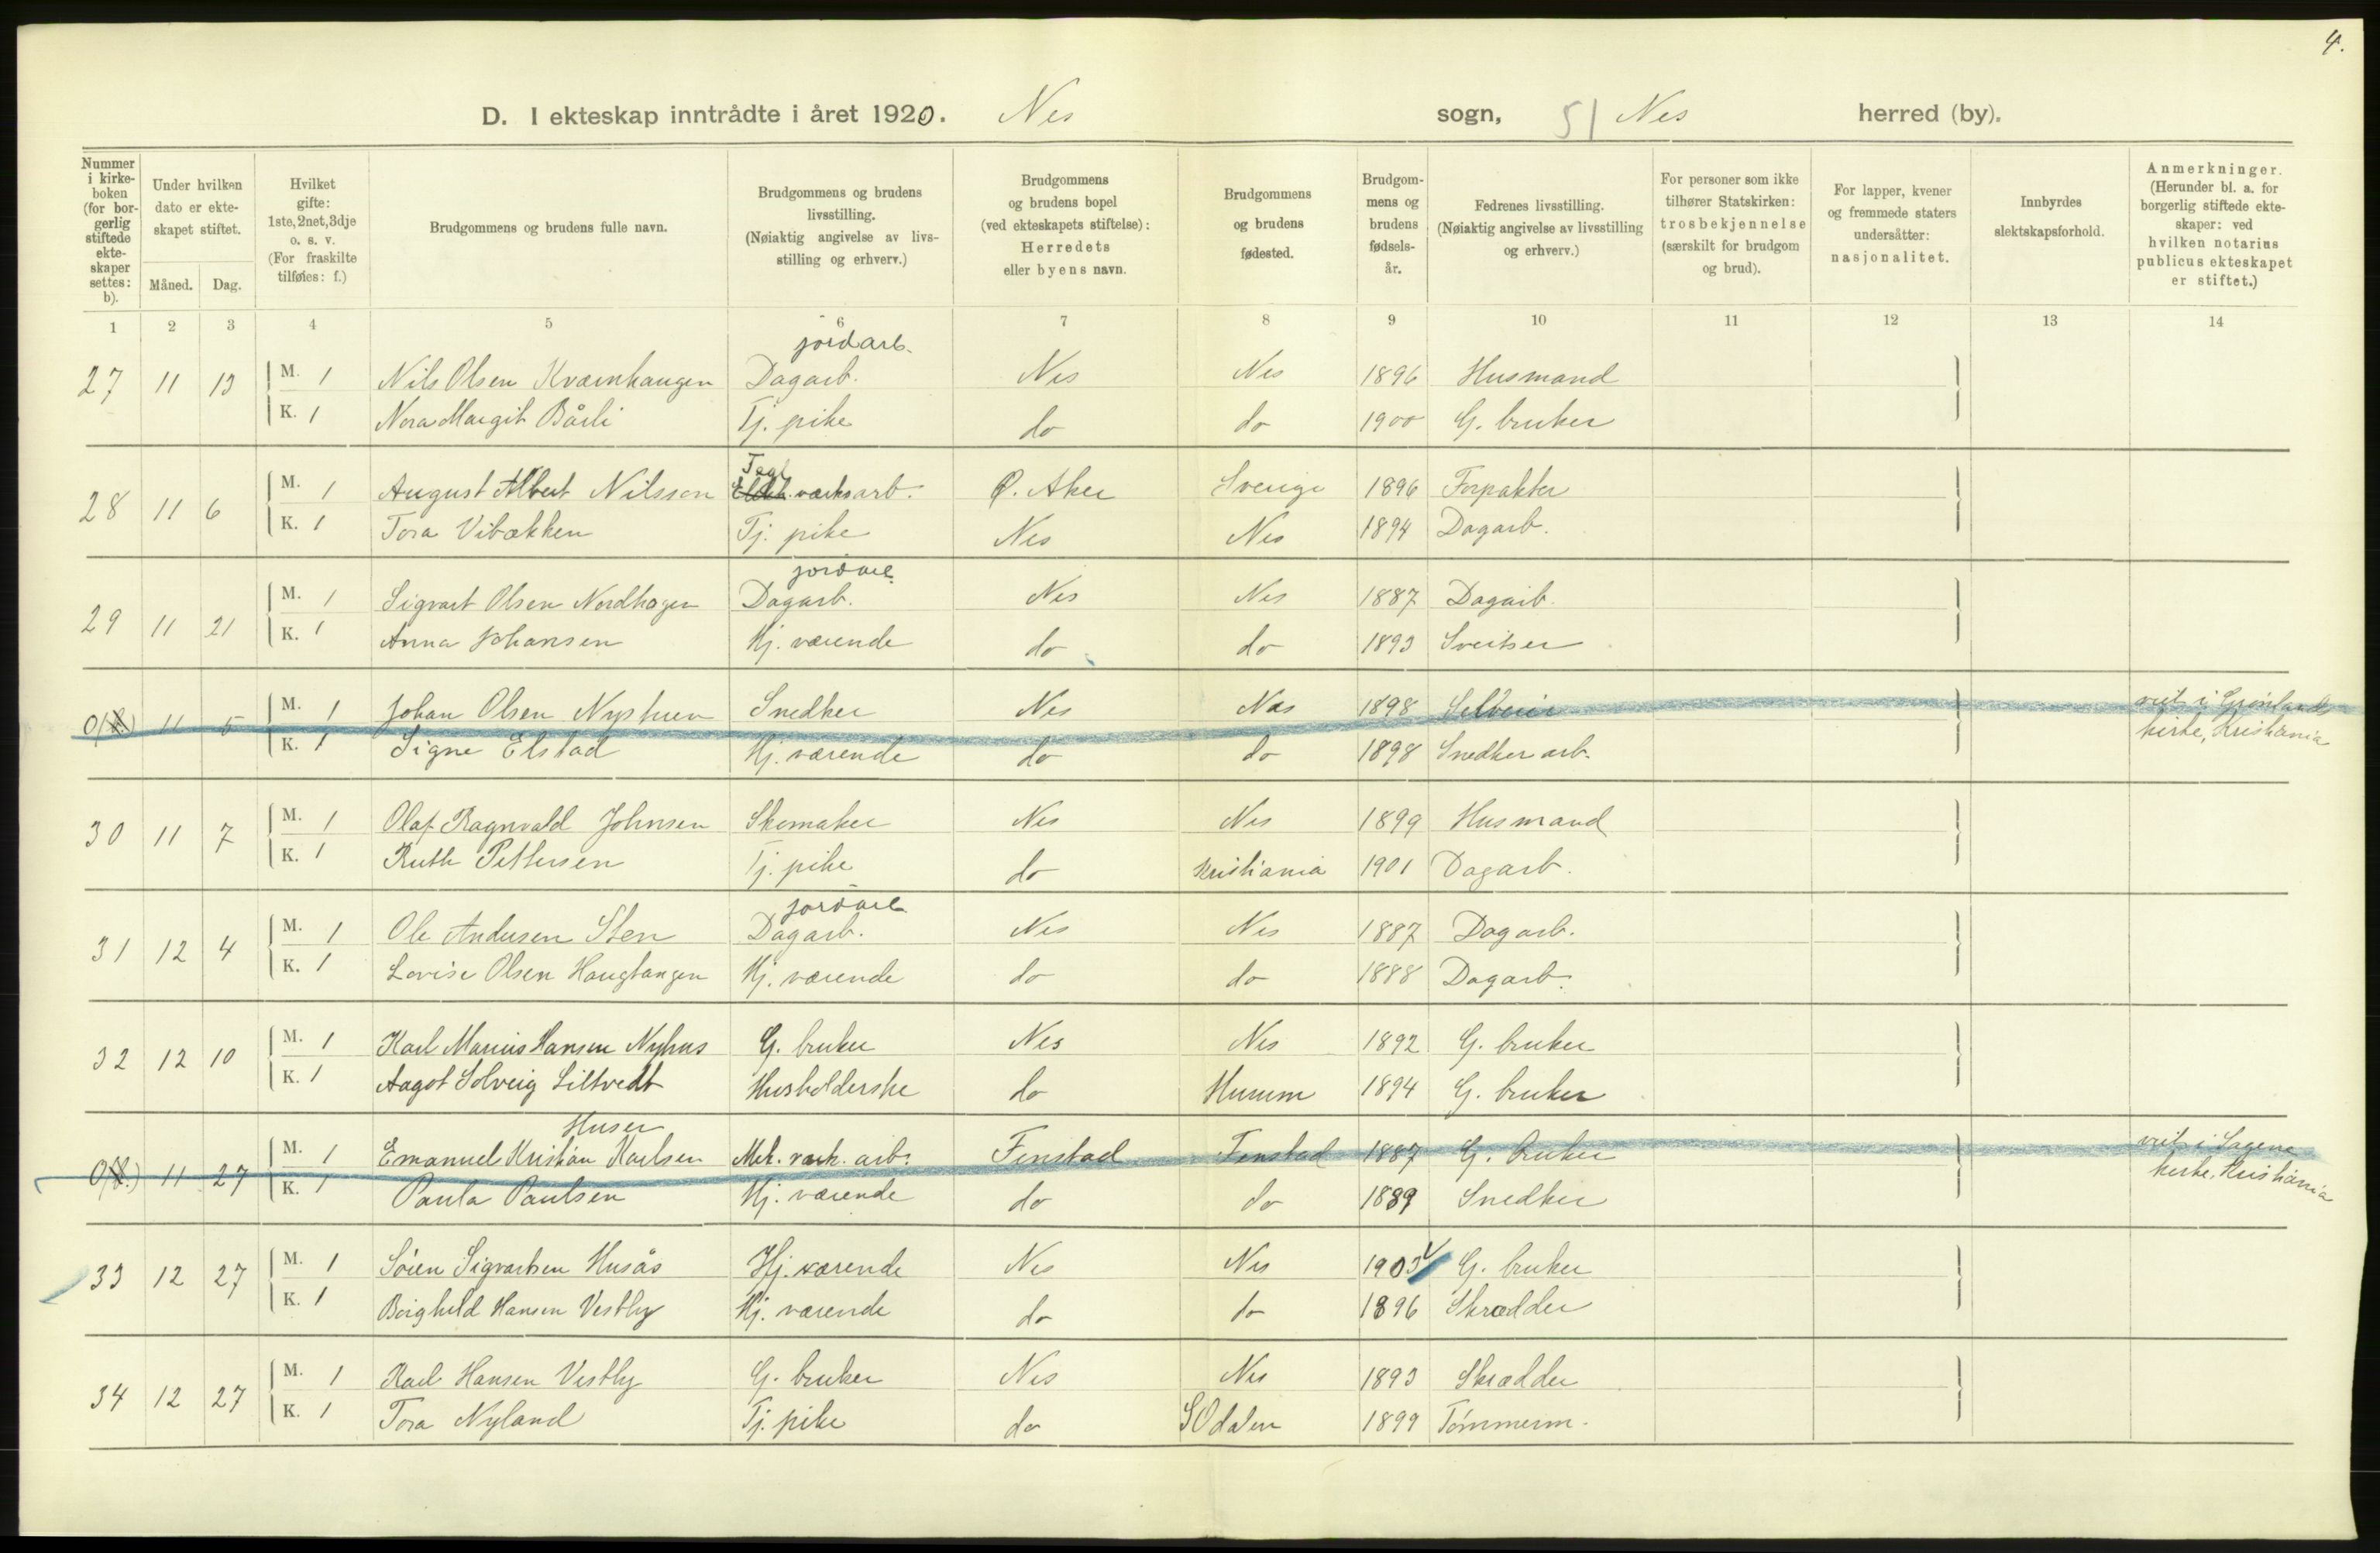 4.
D. I ekteskap inntrådte i året 1920. Nes sogn, 51 Nes herred (by).
Nummer i kirke-boken (for bor-gerlig stiftede ekte-skaper settes: b).
Under hvilken dato er ekte-skapet stiftet.
Måned. Dag.
Hvilket gifte: 1ste, 2net, 3dje o. s. v. (For fraskilte tilføies: f.)
Brudgommens og brudens fulle navn.
Brudgommens og brudens livsstilling. (Nøiaktig angivelse av livs-stilling og erhverv.)
Brudgommens og brudens bopel (ved ekteskapets stiftelse): Herredets eller byens navn.
Brudgommens og brudens fødested.
Brudgom-mens og brudens fødsels-år.
Fedrenes livsstilling. (Nøiaktig angivelse av livsstilling og erhverv.)
For personer som ikke tilhører Statskirken: trosbekjennelse (særskilt for brudgom og brud).
For lapper, kvener og fremmede staters undersåtter: nasjonalitet.
Innbyrdes slektskapsforhold.
Anmerkninger. (Herunder bl. a. for borgerlig stiftede ekte-skaper: ved hvilken notarius publicus ekteskapet er stiftet.)
1 2 3 4 5 6 7 8 9 10 11 12 13 14
jordarb.
27 11 13 M. 1 Nils Olsen Kværnhaugen Dagarb. Nes Nes 1896 Husmand
K. 1 Nora Margit Bårli Tj. pike do do 1900 G. bruker
Tegl
28 11 6 M. 1 August Albert Nilsson Elektr. værksarb. Ø. Aker Sverige 1896 Forpakter
K. 1 Tora Vibækken Tj. pike Nes Nes 1894 Dagarb.
jordarb.
29 11 21 M. 1 Sigvart Olsen Nordhagen Dagarb. Nes Nes 1887 Dagarb.
K. 1 Anna Johansen Hj. værende do do 1893 Sveitser
0 11 5 M. 1 Johan Olsen Nyhuen Snedker Nes Nes 1898 Selveier viet i Grønlands
K. 1 Signe Elstad Hj. værende do do 1898 Snedker arb. kirke, Kristiania
30 11 7 M. 1 Olaf Ragnvald Johnsen Skomaker Nes Nes 1899 Husmand
K. 1 Ruth Pettersen Tj. pike do Kristiania 1901 Dagarb.
jordarb.
31 12 4 M. 1 Ole Andersen Sten Dagarb. Nes Nes 1887 Dagarb.
K. 1 Lovise Olsen Haugtangen Hj. værende do do 1888 Dagarb.
32 12 10 M. 1 Karl Marius Hansen Nyhus G. bruker Nes Nes 1892 G. bruker
K. 1 Aagot Solveig Siltvedt Husholderske do Hurum 1894 G. bruker
Huser
0 11 27 M. 1 Emanuel Kristian Karlsen Mek. verk. arb. Fenstad Fenstad 1887 G. bruker viet i Sagene
K. 1 Paula Paulsen Hj. værende do do 1889 Snedker kirke, Kristiania
33 12 27 M. 1 Søren Sigvartsen Husås Hj. værende Nes Nes 1903 G. bruker
K. 1 Borghild Hansen Vestby Hj. værende do do 1896 Skrædder
34 12 27 M. 1 Karl Hansen Vestby G. bruker Nes Nes 1893 Skrædder
K. 1 Tora Nyland Tj. pike do S Odalen 1899 Tømmerm.